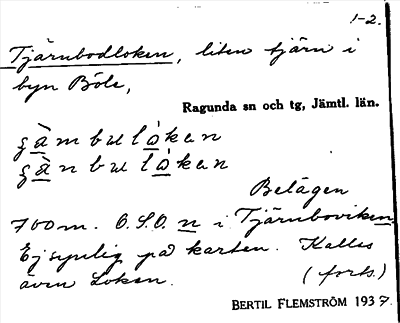 1-2.
Tjärnbodloken, liten tjärn i
byn Böle,
Ragunda sn och tg, Jämtl. län.
gàmbulòkan
gànbulòkan
Belägen
700 m. O.S.O. n i Tjärnboviken
Ej synlig på kartan. Kallas
även Loken. (forts.)
BERTIL FLEMSTRÖM 1937.